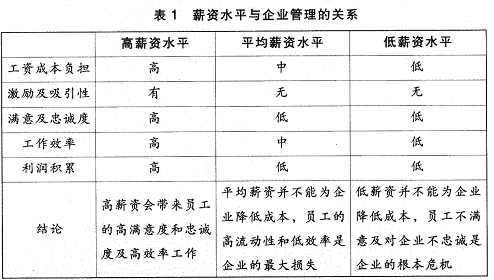 表 1 薪资水平与企业管理的关系
高薪资水平 平均薪资水平 低薪资水平
工资成本负担 高 中 低
激励及吸引性 有 无 无
满意及忠诚度 高 低 低
工作效率 高 中 低
利润积累 高 低 低
结论 高薪资会带来员工的高满意度和忠诚度及高效率工作 平均薪资并不能为企业降低成本，员工的高流动性和低效率是企业的最大损失 低薪资并不能为企业降低成本，员工不满意及对企业不忠诚是企业的根本危机